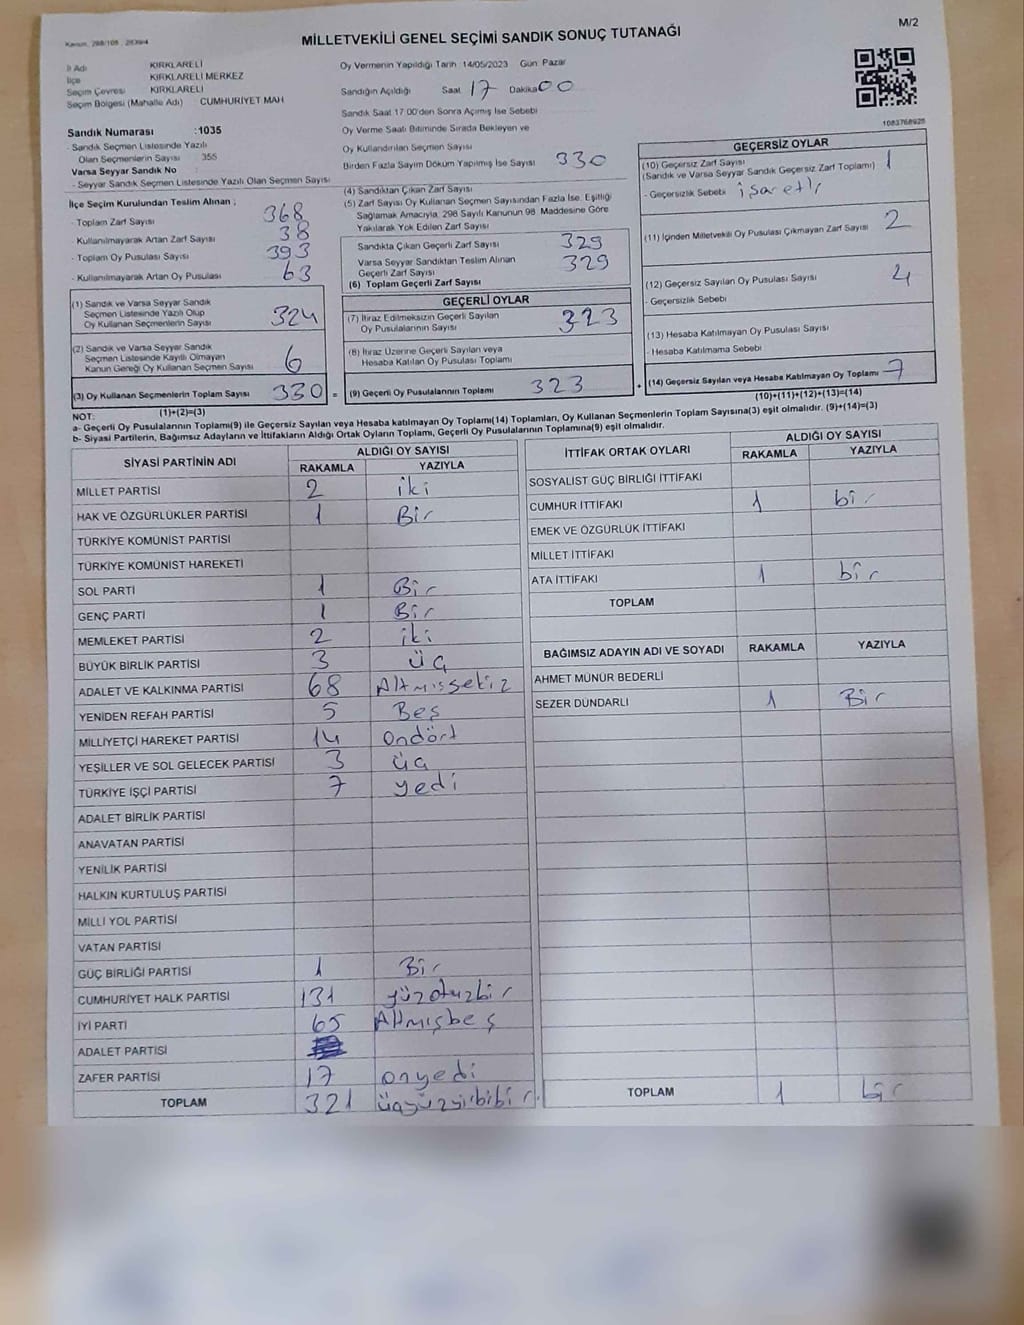 Kanun, 298/105 , 2839/4
M/2
MİLLETVEKİLİ GENEL SEÇİMİ SANDIK SONUÇ TUTANAĞI
İl Adı KIRKLARELİ
İlçe KIRKLARELİ MERKEZ
Seçim Çevresi KIRKLARELİ
Seçim Bölgesi (Mahalle Adı) CUMHURİYET MAH
Sandık Numarası :1035
- Sandık Seçmen Listesinde Yazılı
Olan Seçmenlerin Sayısı : 355
Varsa Seyyar Sandık No
- Seyyar Sandık Seçmen Listesinde Yazılı Olan Seçmen Sayısı
İlçe Seçim Kurulundan Teslim Alınan ;
- Toplam Zarf Sayısı 368
- Kullanılmayarak Artan Zarf Sayısı 38
- Toplam Oy Pusulası Sayısı 393
- Kullanılmayarak Artan Oy Pusulası 63
(1) Sandık ve Varsa Seyyar Sandık
Seçmen Listesinde Yazılı Olup
Oy Kullanan Seçmenlerin Sayısı 324
(2) Sandık ve Varsa Seyyar Sandık
Seçmen Listesinde Kayıtlı Olmayan
Kanun Gereği Oy Kullanan Seçmen Sayısı 6
(3) Oy Kullanan Seçmenlerin Toplam Sayısı 330 =
(1)+(2)=(3)
Oy Vermenin Yapıldığı Tarih 14/05/2023 Gün Pazar
Sandığın Açıldığı Saat 17 Dakika 00
Sandık Saat 17 00'den Sonra Açımış İse Sebebi
Oy Verme Saati Bitiminde Sırada Bekleyen ve
Oy Kullandırılan Seçmen Sayısı
Birden Fazla Sayım Döküm Yapılmış İse Sayısı 330
(4) Sandıktan Çıkan Zarf Sayısı
(5) Zarf Sayısı Oy Kullanan Seçmen Sayısından Fazla İse, Eşitliği
Sağlamak Amacıyla, 298 Sayılı Kanunun 98. Maddesine Göre
Yakılarak Yok Edilen Zarf Sayısı
Sandıkta Çıkan Geçerli Zarf Sayısı 329
Varsa Seyyar Sandıktan Teslim Alınan
Geçerli Zarf Sayısı 329
(6) Toplam Geçerli Zarf Sayısı
GEÇERLİ OYLAR
(7) İtiraz Edilmeksizin Geçerli Sayılan
Oy Pusulalarının Sayısı 323
(8) İtiraz Üzerine Geçerli Sayılan veya
Hesaba Katılan Oy Pusulası Toplamı
(9) Geçerli Oy Pusulalarının Toplamı 323 +
1083768925
GEÇERSİZ OYLAR
(10) Geçersiz Zarf Sayısı
(Sandık ve Varsa Seyyar Sandık Geçersiz Zarf Toplamı) 1
- Geçersizlik Sebebi işaretli
(11) İçinden Milletvekili Oy Pusulası Çıkmayan Zarf Sayısı 2
(12) Geçersiz Sayılan Oy Pusulası Sayısı 4
- Geçersizlik Sebebi
(13) Hesaba Katılmayan Oy Pusulası Sayısı
- Hesaba Katılmama Sebebi
(14) Geçersiz Sayılan veya Hesaba Katılmayan Oy Toplamı 7
(10)+(11)+(12)+(13)=(14)
NOT:
a- Geçerli Oy Pusulalarının Toplamı(9) ile Geçersiz Sayılan veya Hesaba katılmayan Oy Toplamı(14) Toplamları, Oy Kullanan Seçmenlerin Toplam Sayısına(3) eşit olmalıdır. (9)+(14)=(3)
b- Siyasi Partilerin, Bağımsız Adayların ve İttifakların Aldığı Ortak Oyların Toplamı, Geçerli Oy Pusulalarının Toplamına(9) eşit olmalıdır.
SİYASİ PARTİNİN ADI ALDIĞI OY SAYISI
RAKAMLA YAZIYLA
MİLLET PARTİSİ 2 iki
HAK VE ÖZGÜRLÜKLER PARTİSİ 1 Bir
TÜRKİYE KOMÜNİST PARTİSİ
TÜRKİYE KOMÜNİST HAREKETİ
SOL PARTİ 1 Bir
GENÇ PARTİ 1 Bir
MEMLEKET PARTİSİ 2 iki
BÜYÜK BİRLİK PARTİSİ 3 üç
ADALET VE KALKINMA PARTİSİ 68 Altmışsekiz
YENİDEN REFAH PARTİSİ 5 Beş
MİLLİYETÇİ HAREKET PARTİSİ 14 Ondört
YEŞİLLER VE SOL GELECEK PARTİSİ 3 üç
TÜRKİYE İŞÇİ PARTİSİ 7 yedi
ADALET BİRLİK PARTİSİ
ANAVATAN PARTİSİ
YENİLİK PARTİSİ
HALKIN KURTULUŞ PARTİSİ
MİLLİ YOL PARTİSİ
VATAN PARTİSİ
GÜÇ BİRLİĞİ PARTİSİ 1 Bir
CUMHURİYET HALK PARTİSİ 131 yüzotuzbir
İYİ PARTİ 65 Altmışbeş
ADALET PARTİSİ
ZAFER PARTİSİ 17 onyedi
TOPLAM 321
İTTİFAK ORTAK OYLARI ALDIĞI OY SAYISI
RAKAMLA YAZIYLA
SOSYALIST GÜÇ BİRLİĞİ İTTİFAKI
CUMHUR İTTİFAKI 1 bir
EMEK VE ÖZGÜRLÜK İTTİFAKI
MİLLET İTTİFAKI
ATA İTTİFAKI 1 bir
TOPLAM
BAĞIMSIZ ADAYIN ADI VE SOYADI RAKAMLA YAZIYLA
AHMET MÜNÜR BEDERLİ
SEZER DÜNDARLI 1 Bir
TOPLAM 1 bir